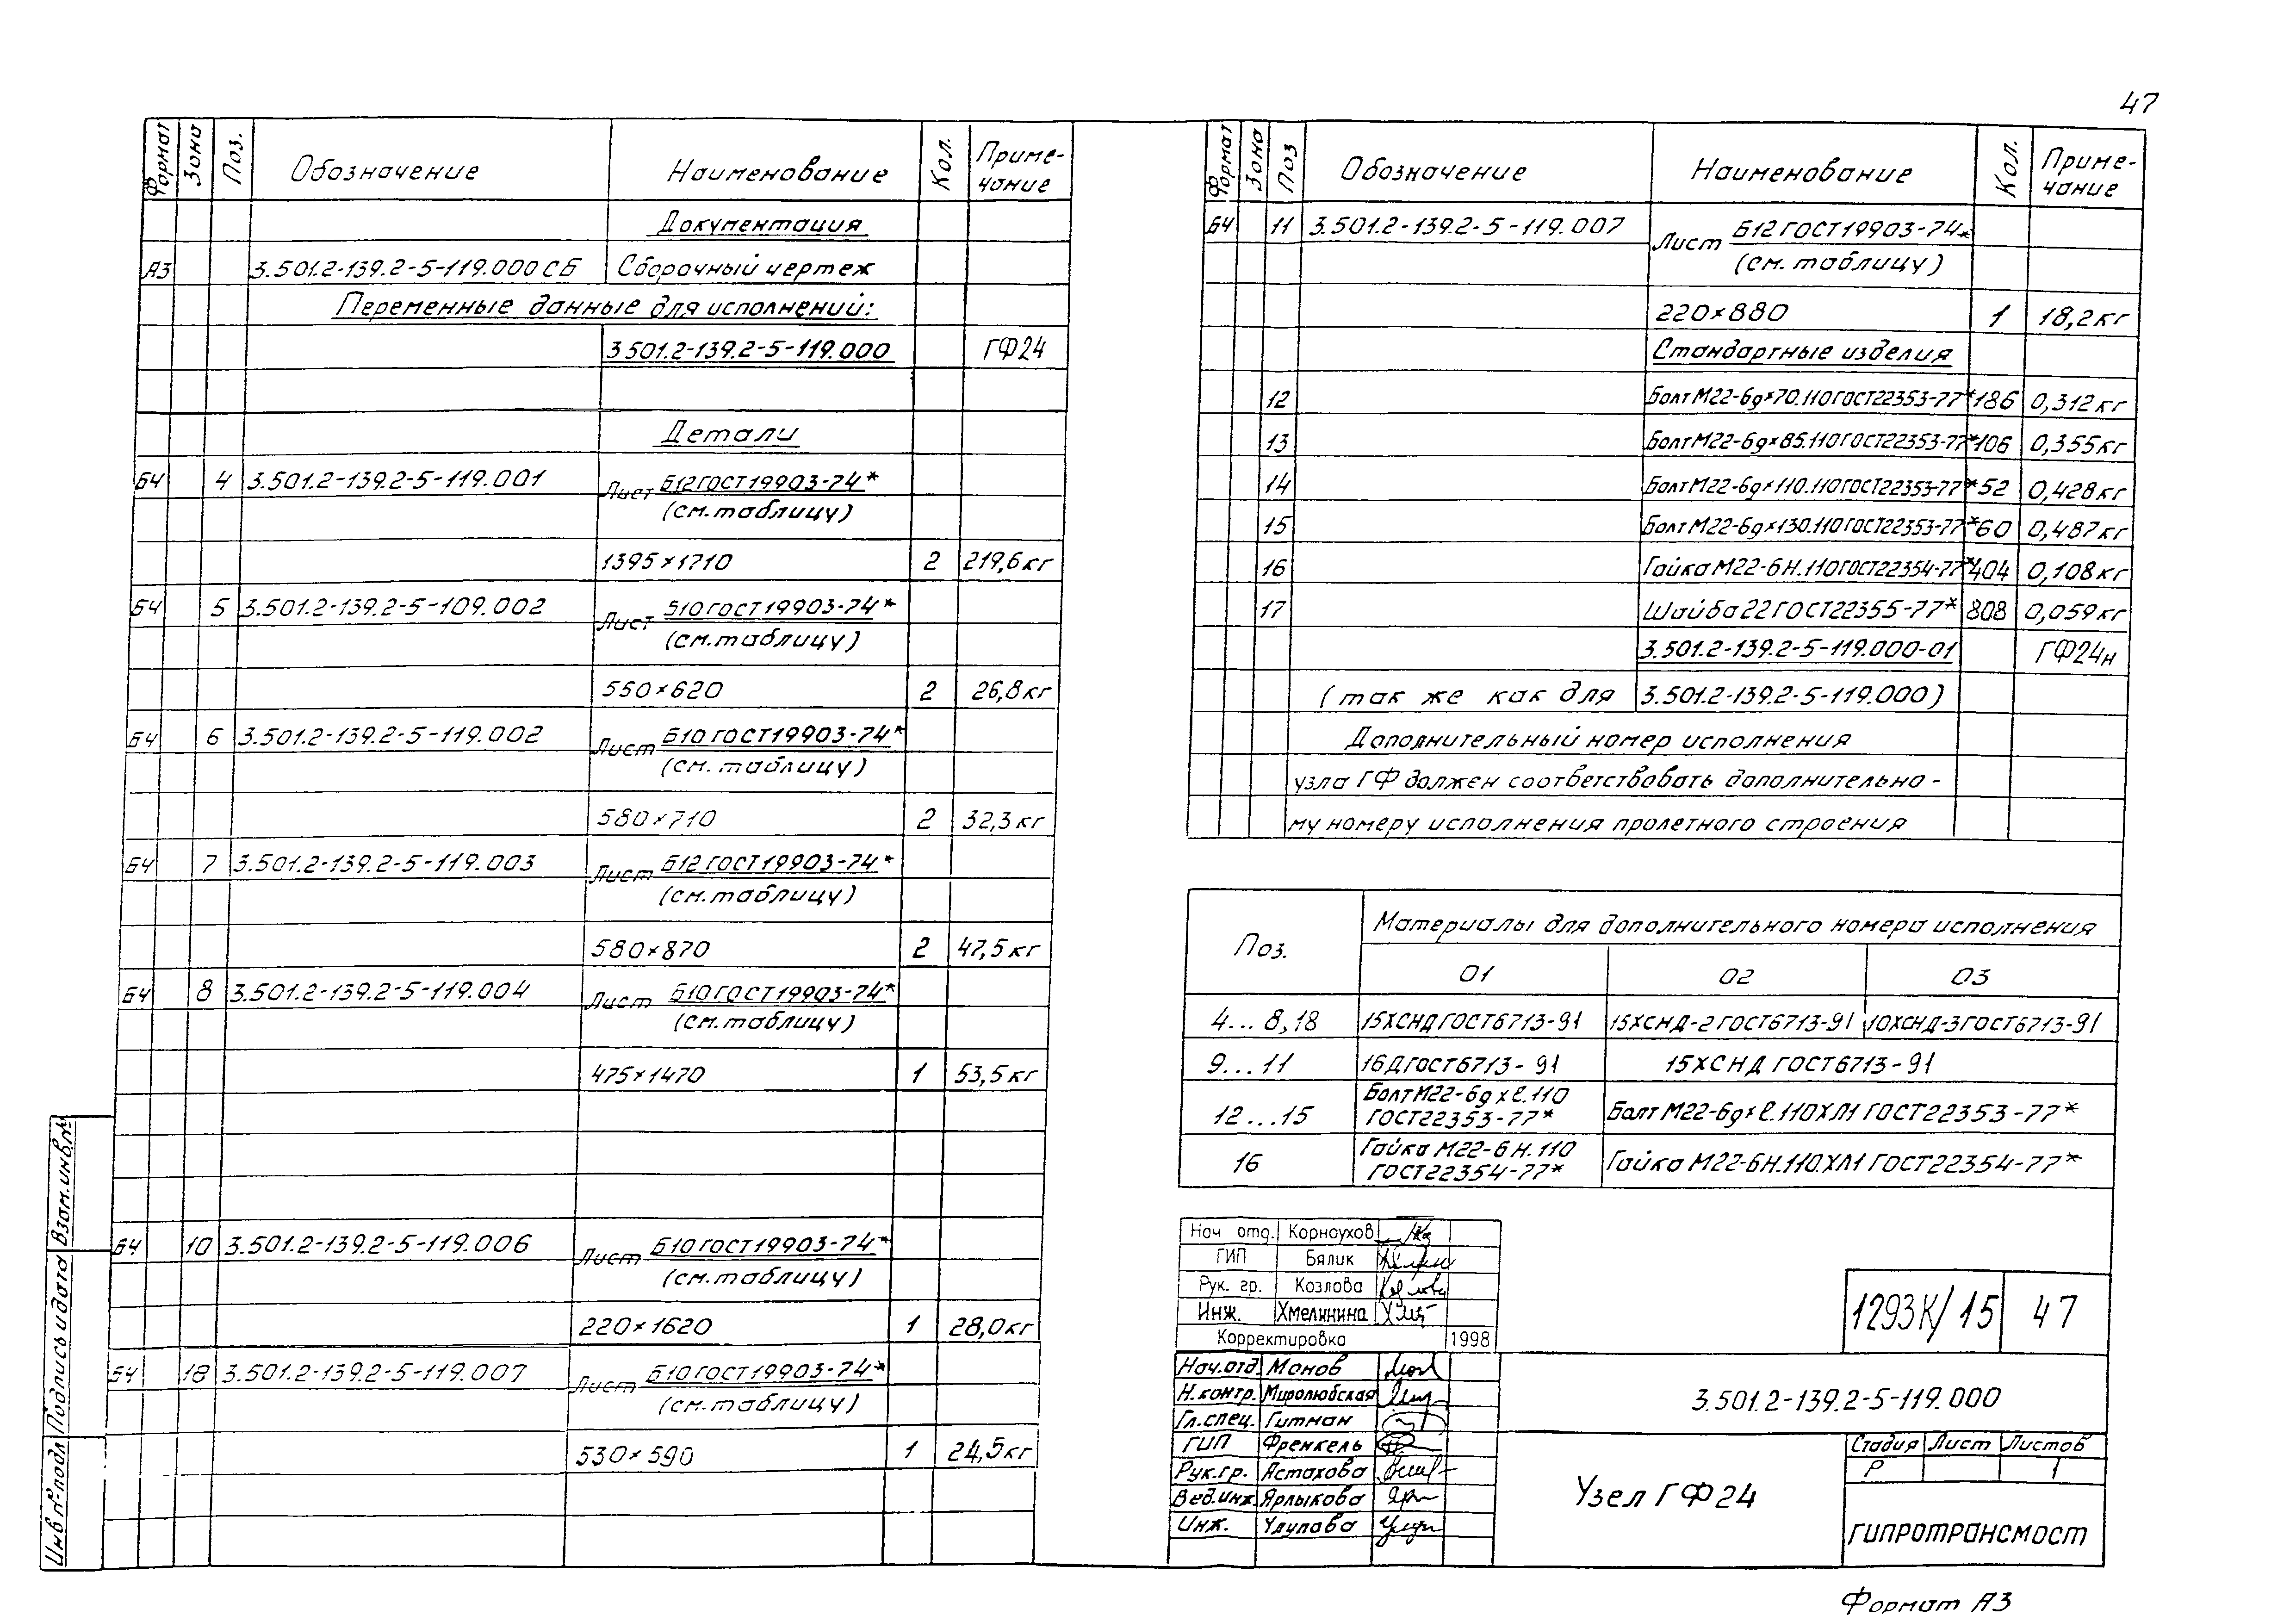 47
Формат Зона Поз. Обозначение Наименование Кол. Приме-
чание
Документация
А3 3.501.2-139.2-5-119.000СБ Сборочный чертеж
Переменные данные для исполнений:
3.501.2-139.2-5-119.000 ГФ24
Детали
БЧ 4 3.501.2-139.2-5-119.001 Лист Б12 ГОСТ 19903-74*
(см. таблицу)
1395×1710 2 219,6кг
БЧ 5 3.501.2-139.2-5-109.002 Лист Б10 ГОСТ 19903-74*
(см. таблицу)
550×620 2 26,8кг
БЧ 6 3.501.2-139.2-5-119.002 Лист Б10 ГОСТ 19903-74*
(см. таблицу)
580×710 2 32,3кг
БЧ 7 3.501.2-139.2-5-119.003 Лист Б12 ГОСТ 19903-74*
(см. таблицу)
580×870 2 47,5кг
БЧ 8 3.501.2-139.2-5-119.004 Лист Б10 ГОСТ 19903-74*
(см. таблицу)
475×1470 1 53,5кг
БЧ 10 3.501.2-139.2-5-119.006 Лист Б10 ГОСТ 19903-74*
(см. таблицу)
220×1620 1 28,0кг
БЧ 18 3.501.2-139.2-5-119.007 Лист Б10 ГОСТ 19903-74*
(см. таблицу)
530×590 1 24,5кг
Взам. инв.№
Подпись и дата
Инв № подл
Формат Зона Поз Обозначение Наименование Кол. Приме-
чание
БЧ 11 3.501.2-139.2-5-119.007 Лист Б12 ГОСТ 19903-74*
(см. таблицу)
220×880 1 18,2кг
Стандартные изделия
12 Болт М22-6g×70.110 ГОСТ 22353-77* 186 0,312кг
13 Болт М22-6g×85.110 ГОСТ 22353-77* 106 0,355кг
14 Болт М22-6g×110.110 ГОСТ 22353-77* 52 0,428кг
15 Болт М22-6g×130.110 ГОСТ 22353-77* 60 0,487кг
16 Гайка М22-6Н.110 ГОСТ 22354-77* 404 0,108кг
17 Шайба 22 ГОСТ 22355-77* 808 0,059кг
3.501.2-139.2-5-119.000-01 ГФ24н
(так же как для 3.501.2-139.2-5-119.000)
Дополнительный номер исполнения
узла ГФ должен соответствовать дополнительно-
му номеру исполнения пролетного строения
Поз. Материалы для дополнительного номера исполнения
01 02 03
4...8,18 15ХСНД ГОСТ 6713-91 15ХСНД-2 ГОСТ 6713-91 10ХСНД-3 ГОСТ 6713-91
9...11 16Д ГОСТ 6713-91 15ХСНД ГОСТ 6713-91
12...15 Болт М22-6g×ℓ.110
ГОСТ 22353-77* Болт М22-6g×ℓ.110ХЛ1 ГОСТ 22353-77*
16 Гайка М22-6Н.110
ГОСТ 22354-77* Гайка М22-6Н.110.ХЛ1 ГОСТ 22354-77*
Нач отд. Корноухов
ГИП Бялик
Рук. гр. Козлова
Инж. Хмелинина
Корректировка 1998
1293К/15 47
Нач.отд. Монов
Н.контр. Миролюбская
Гл.спец. Гитман
ГИП Френкель
Рук.гр. Астахова
Вед.инж. Ярлыкова
Инж. Улупова
3.501.2-139.2-5-119.000
Узел ГФ24
Стадия Лист Листов
Р 1
ГИПРОТРАНСМОСТ
Формат А3